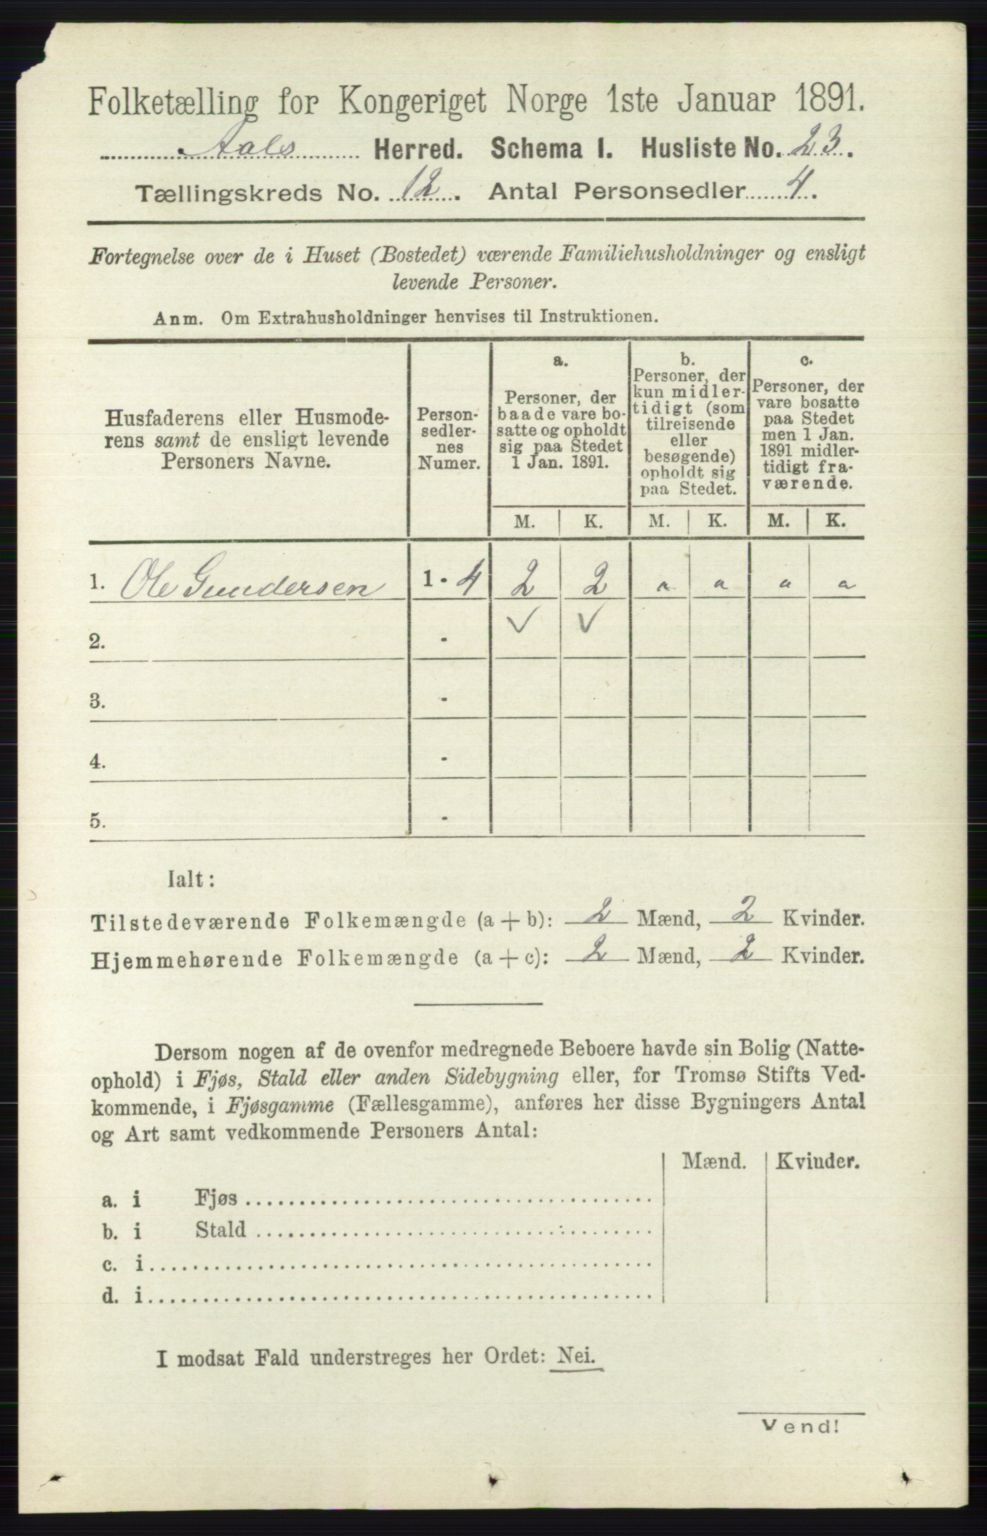 Folketælling for Kongeriget Norge 1ste Januar 1891.
Aals Herred. Schema I. Husliste No. 23.
Tællingskreds No. 12. Antal Personsedler 4.
Fortegnelse over de i Huset (Bostedet) værende Familiehusholdninger og ensligt
levende Personer.
Anm. Om Extrahusholdninger henvises til Instruktionen.
Husfaderens eller Husmode-
rens samt de ensligt levende
Personers Navne.
Person-
sedler-
nes
Numer.
a.
Personer, der
baade vare bo-
satte og opholdt
sig paa Stedet
1 Jan. 1891.
b.
Personer, der
kun midler-
tidigt (som
tilreisende
eller
besøgende)
opholdt sig
paa Stedet.
c.
Personer, der
vare bosatte
paa Stedet
men 1 Jan.
1891 midler-
tidigt fra-
værende.
M. K. M. K. M. K.
1. Ole Gundersen 1 - 4 2 2 " " " "
2. - ✓ ✓
3. -
4. -
5. -
Ialt:
Tilstedeværende Folkemængde (a + b): 2 Mænd, 2 Kvinder.
Hjemmehørende Folkemængde (a + c): 2 Mænd, 2 Kvinder.
Dersom nogen af de ovenfor medregnede Beboere havde sin Bolig (Natte-
ophold) i Fjøs, Stald eller anden Sidebygning eller, for Tromsø Stifts Ved-
kommende, i Fjøsgamme (Fællesgamme), anføres her disse Bygningers Antal
og Art samt vedkommende Personers Antal:
Mænd. Kvinder.
a. i Fjøs
b. i Stald
c. i
d. i
I modsat Fald understreges her Ordet: Nei.
Vend!